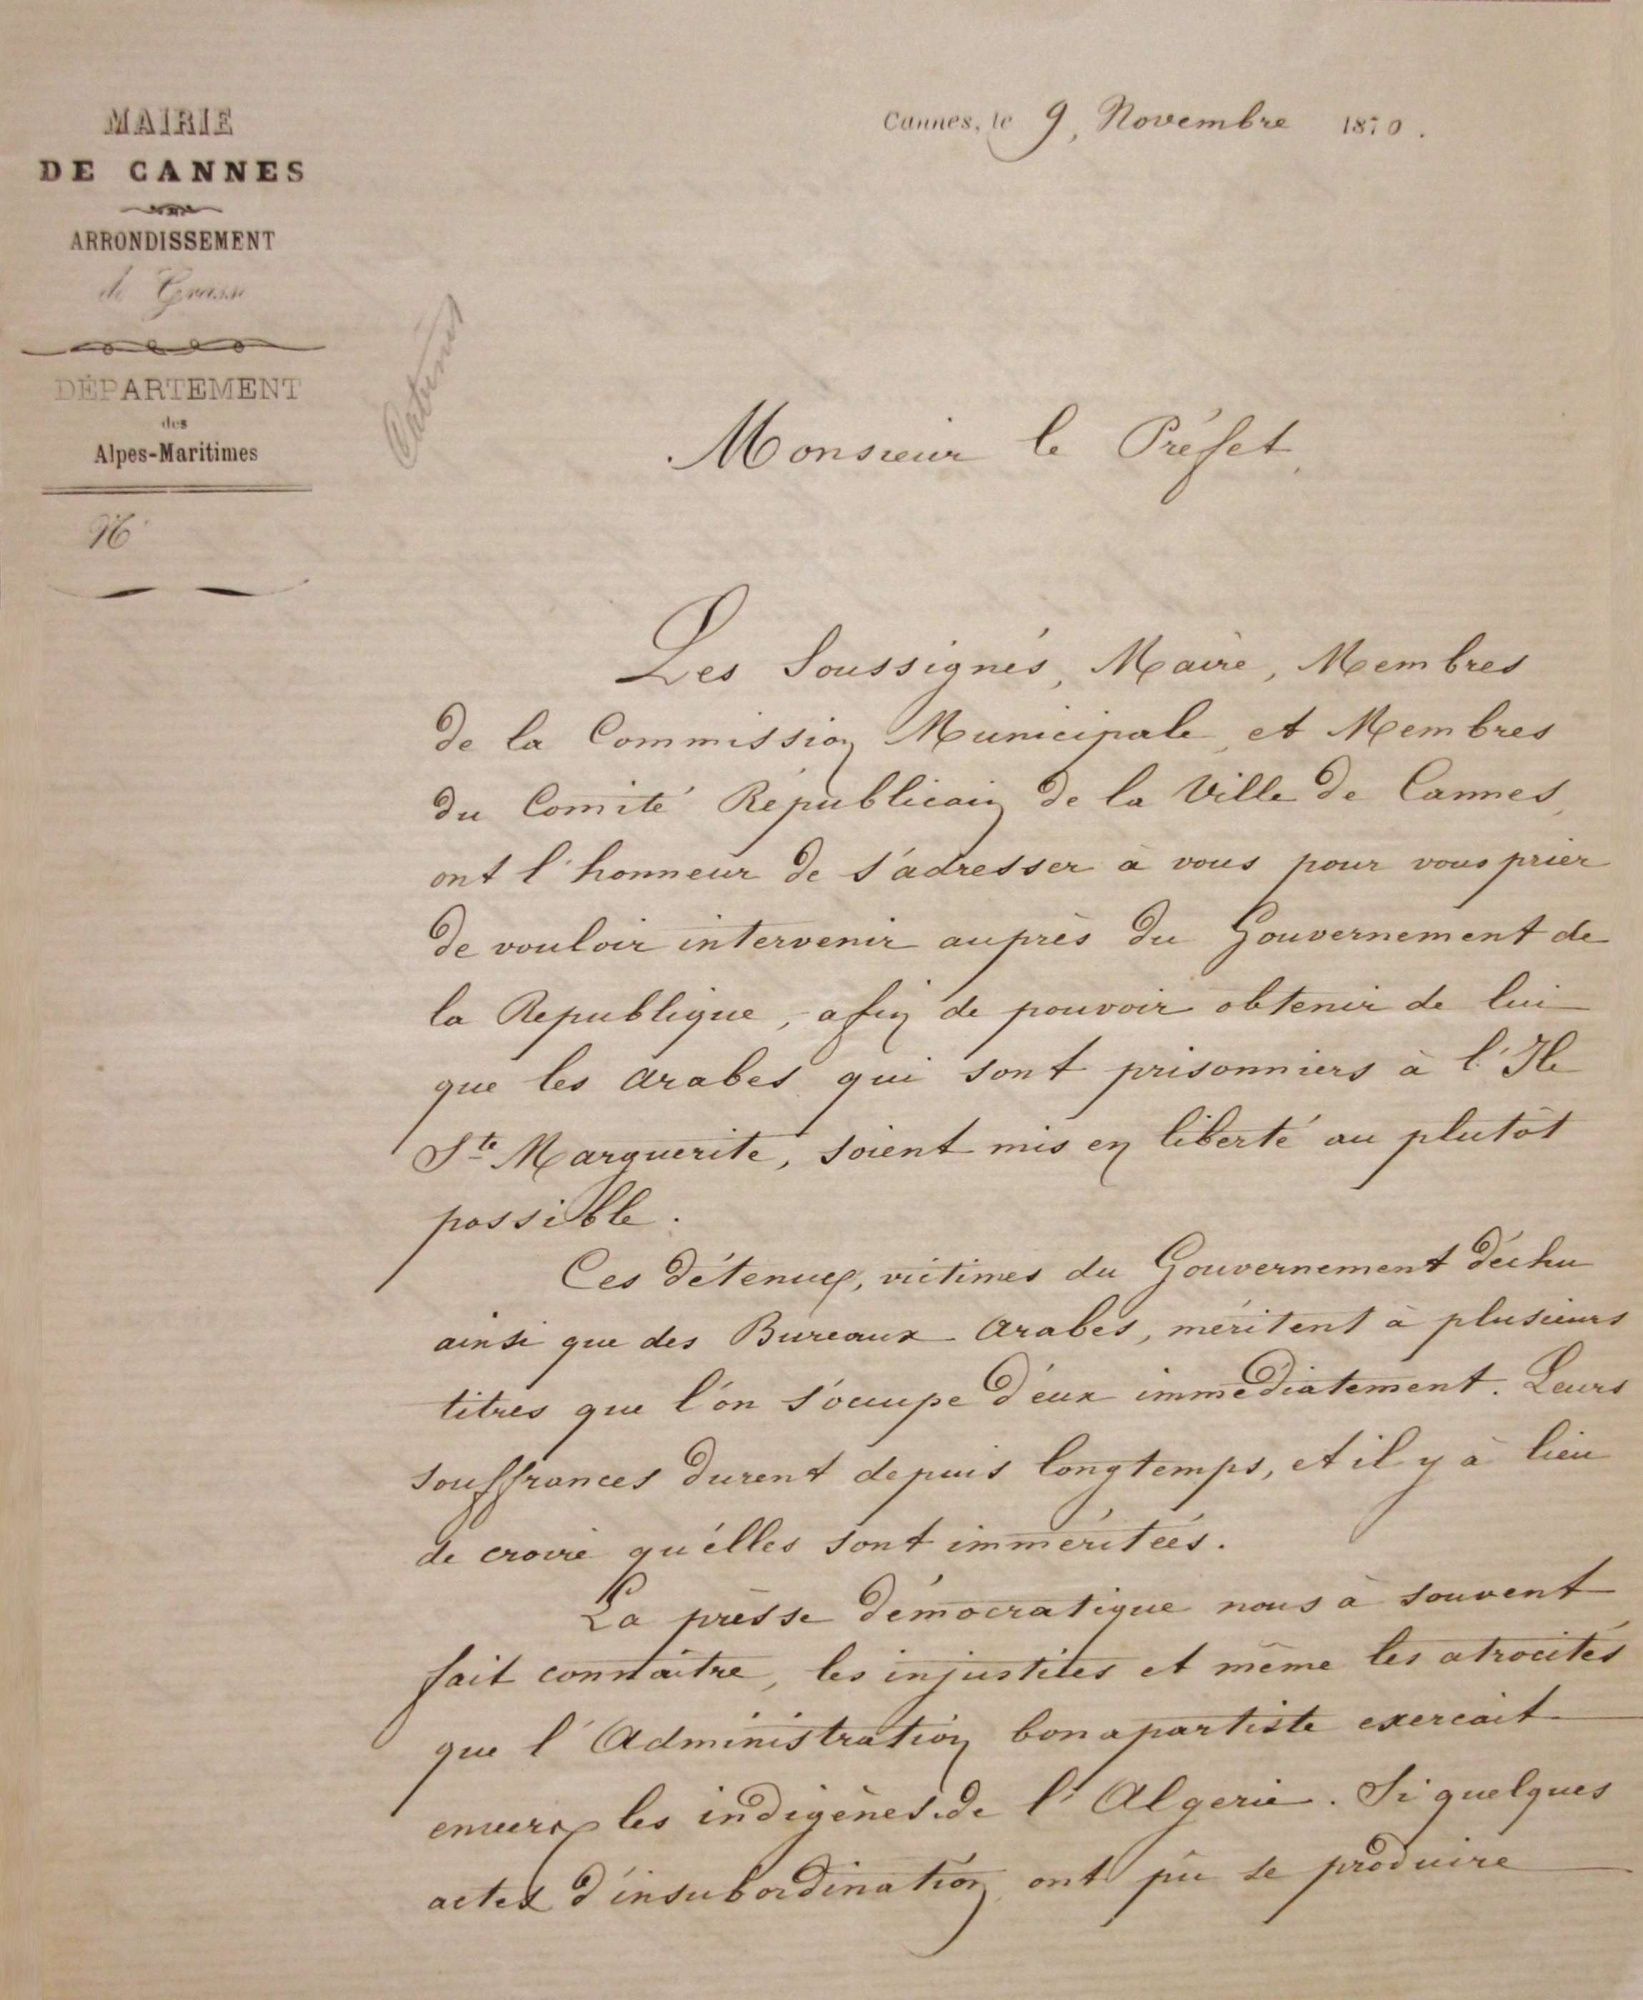 MAIRIE
DE CANNES
ARRONDISSEMENT
de Grasse
DÉPARTEMENT
des
Alpes-Maritimes
N°
Cannes, le 9, Novembre 1870.
Monsieur le Préfet,
Les Soussignés, Maire, Membres
de la Commission Municipale, et Membres
du Comité Républicain de la Ville de Cannes,
ont l'honneur de s'adresser à vous pour vous prier
de vouloir intervenir auprès du Gouvernement de
la Republique, afin de pouvoir obtenir de lui
que les arabes qui sont prisonniers à l'Ile
Ste Marguerite, soient mis en liberté au plutôt
possible.
Ces détenus, victimes du Gouvernement déchu
ainsi que des Bureaux Arabes, méritent à plusieurs
titres que l'on s'occupe d'eux immédiatement. Leurs
souffrances durent depuis longtemps, et il y à lieu
de croire qu'elles sont imméritées.
La prèsse démocratique nous à souvent
fait connaître, les injustices et même les atrocités
que l'Administration bonapartiste exercait
envers les indigènes de l'Algerie. Si quelques
actes d'insubordination ont pû se produire